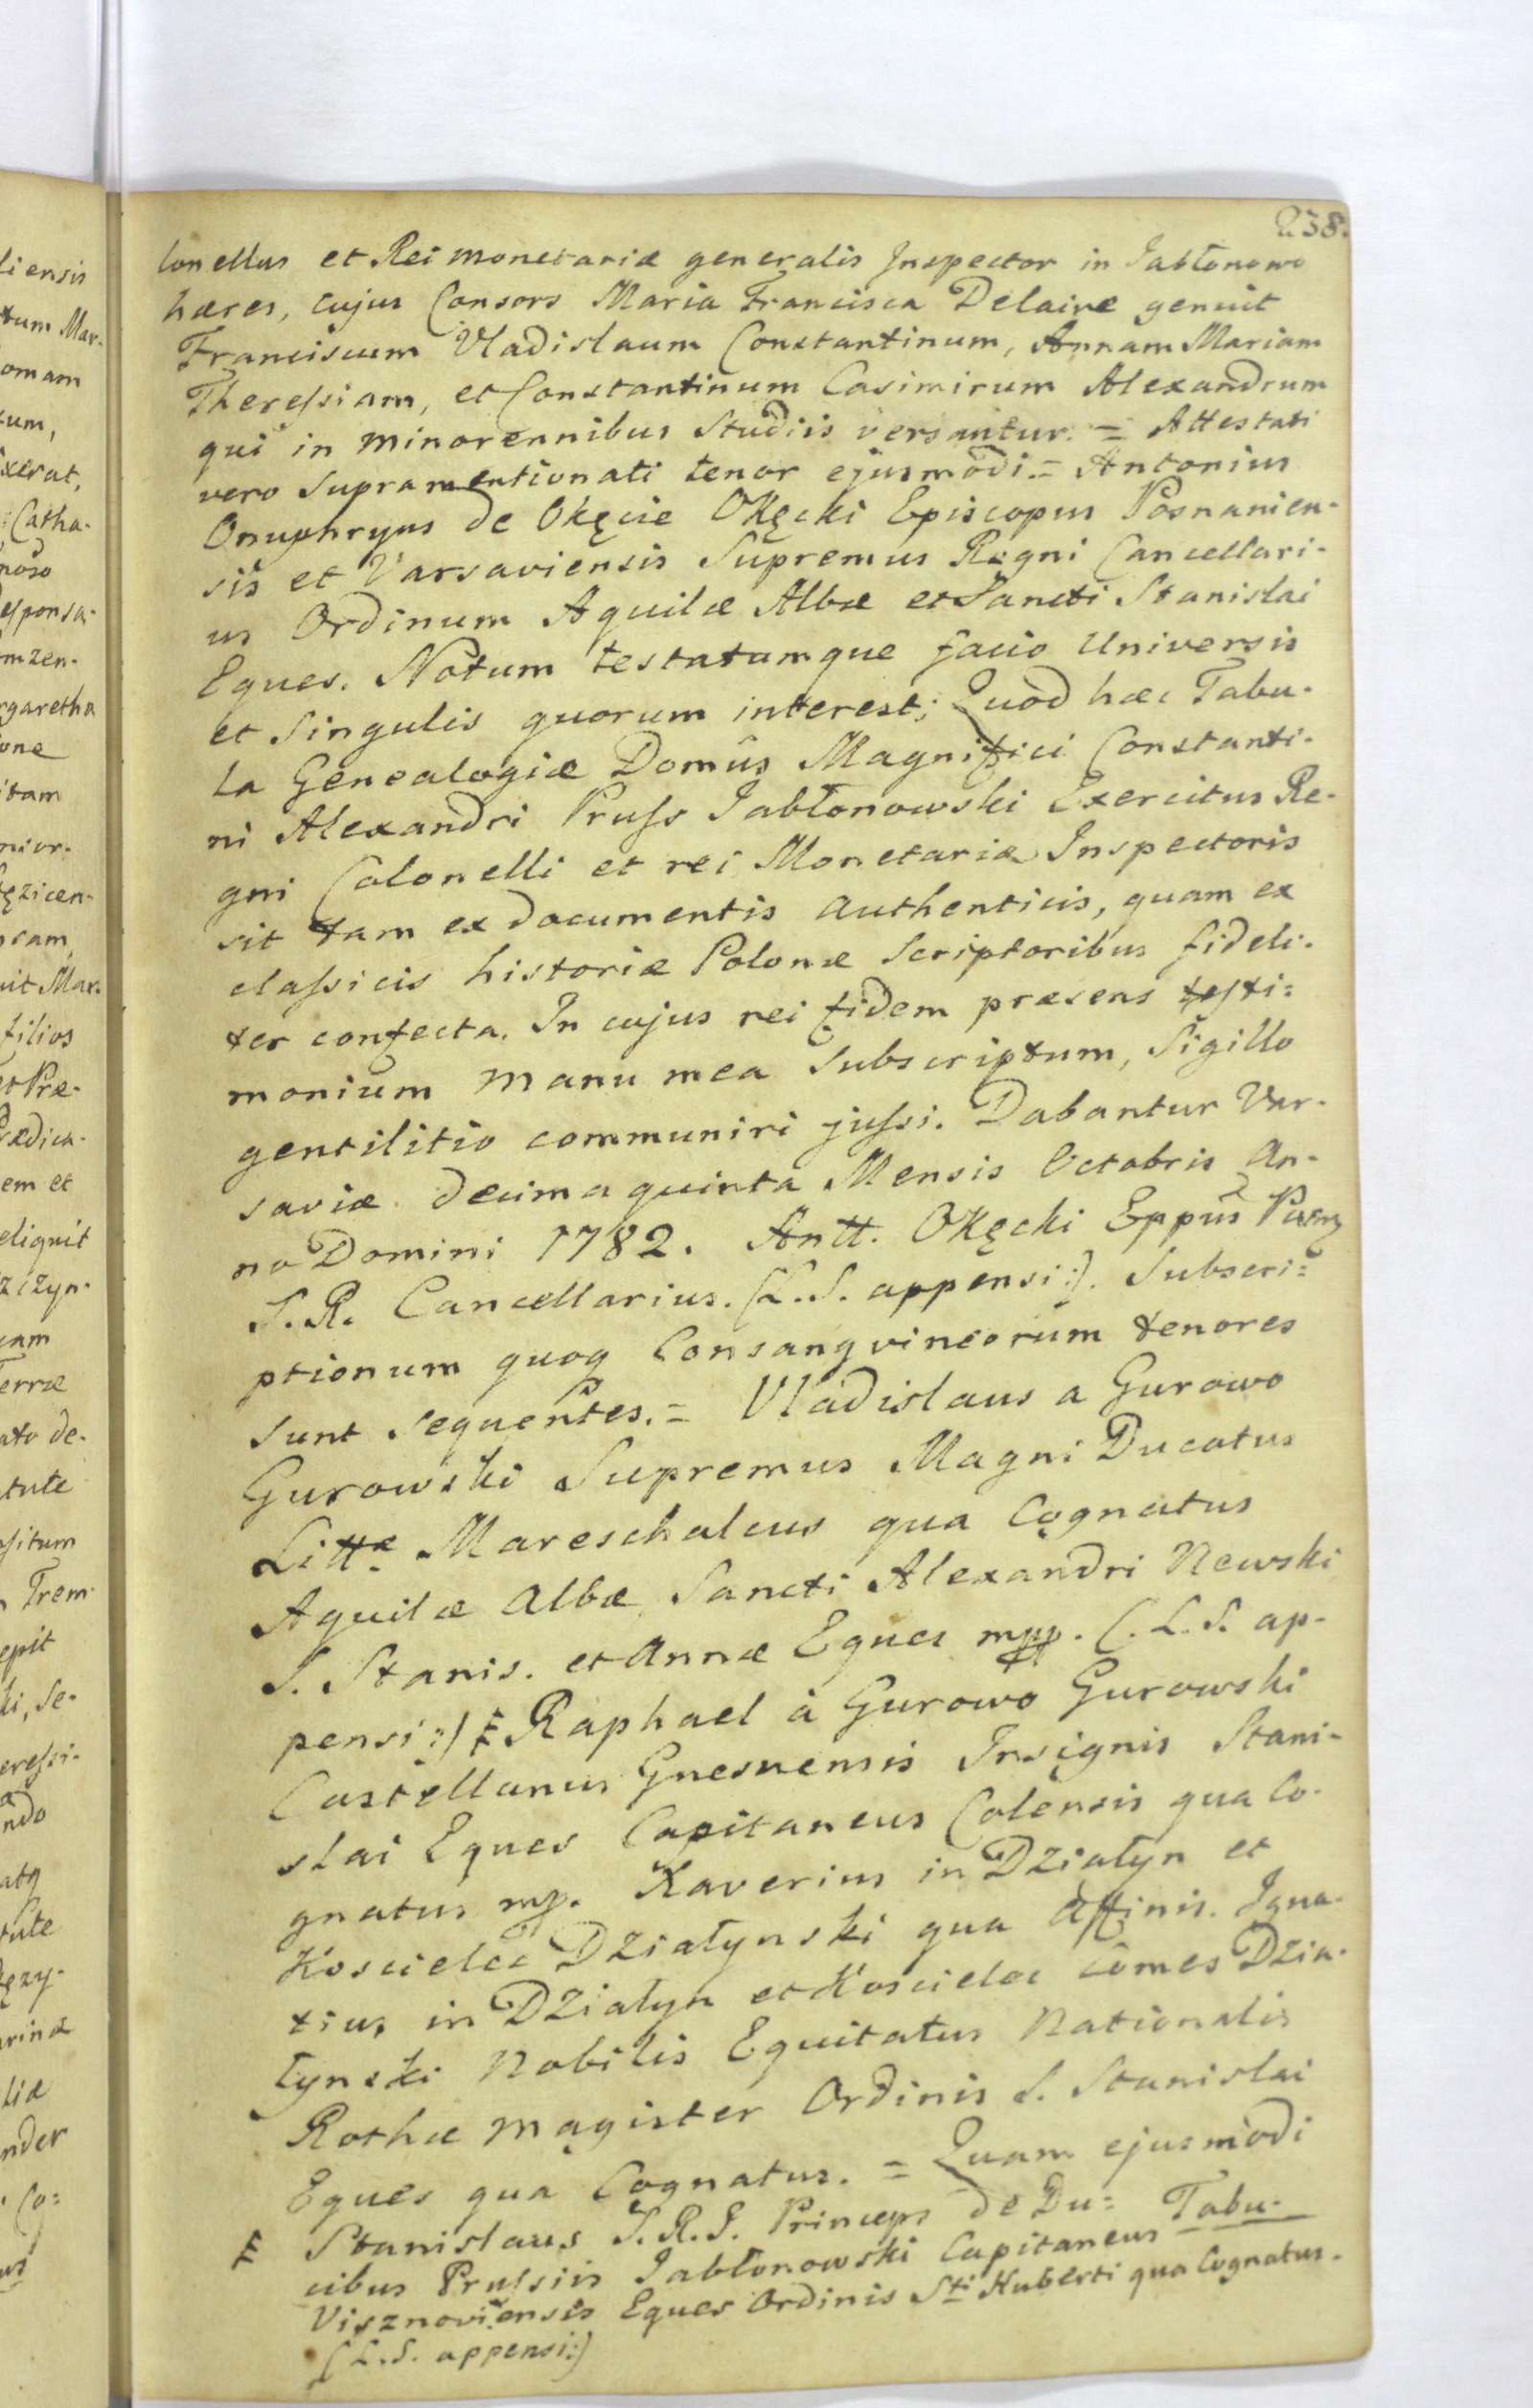 238.
lonellus et Rei monetariæ generalis Inspector in Jabłonowo
hæres, cujus Consors Maria Francisca Delaire genuit
Franciscum Vladislaum Constantinum, Annam Mariam
Theressiam, et Constantinum Casimirum Alexandrum
qui in minorennibus Studiis versantur. = Attestati
vero supramentionati tenor ejusmodi. = Antonius
Onuphryus de Okęcie Okęcki Episcopus Posnanien-
sis et Varsaviensis Supremus Regni Cancellari-
us Ordinum Aquilæ Albæ et Sancti Stanislai
Eques. Notum testatumque facio Universis
et Singulis quorum interest; Quod hæc Tabu-
la Genealogiæ Domûs Magnifici Constanti-
ni Alexandri Pruss Jabłonowski Exercitus Re-
gni Colonelli et rei Monetariæ Inspectoris
sit tam ex documentis authenticis, quam ex
classicis historiæ Polonæ Scriptoribus fideli-
ter confecta. In cujus rei fidem præsens testi=
monium manu mea Subscriptum, Sigillo
gentilitio communiri jussi. Dabantur Var-
saviæ decima quinta Mensis Octobris an-
no Domini 1782. Antt. Okęcki Eppûs
S. R. Cancellarius. (L. S. appensi:). Subscri=
ptionum quoq Consangvineorum tenores
sunt sequentes. = Vladislaus a Gurowo
Gurowski Supremus Magni Ducatus
Littæ Mareschalcus qua Cognatus
Aquilæ albæ, Sancti Alexandri Newski
S. Stanis. et Annæ Eques mpp. (. L. S. ap-
pensi:) Ŧ Raphael à Gurowo Gurowski
Castellanus Gnesnensis Insignis Stani-
slai Eques Capitaneus Colensis qua Co-
gnatus mp. Xaverius in Działyn et
Koscielec Działynski qua affinis. Igna-
tius in Działyn et Koscielec Comes Dzia-
łynski Nobilis Equitatus Nationalis
Rothæ magister Ordinis S. Stanislai
Eques qua Cognatus. = Quam ejusmodi
Tabu-
Ŧ Stanislaus S. R. I. Princeps de Du=
cibus Prussiis Jabłonowski Capitaneus
Visznoviensis Eques Ordinis Sti Huberti qua Cognatus.
(L. S. appensi:)
liensis
tum Mar-
omam
tum,
ixerat,
Catha-
esponsa-
mzen-
rgaretha
one
itam
nior-
ęzicen-
oram,
uit Mar-
filios
et Præ-
rædica-
em et
eliquit
zczyn-
errae
ato de-
tute
ositum
Trem-
epit
ki, Se-
eressi-
ndo
atq
tute
ęzy-
arinæ
liæ
nder
Co=
us